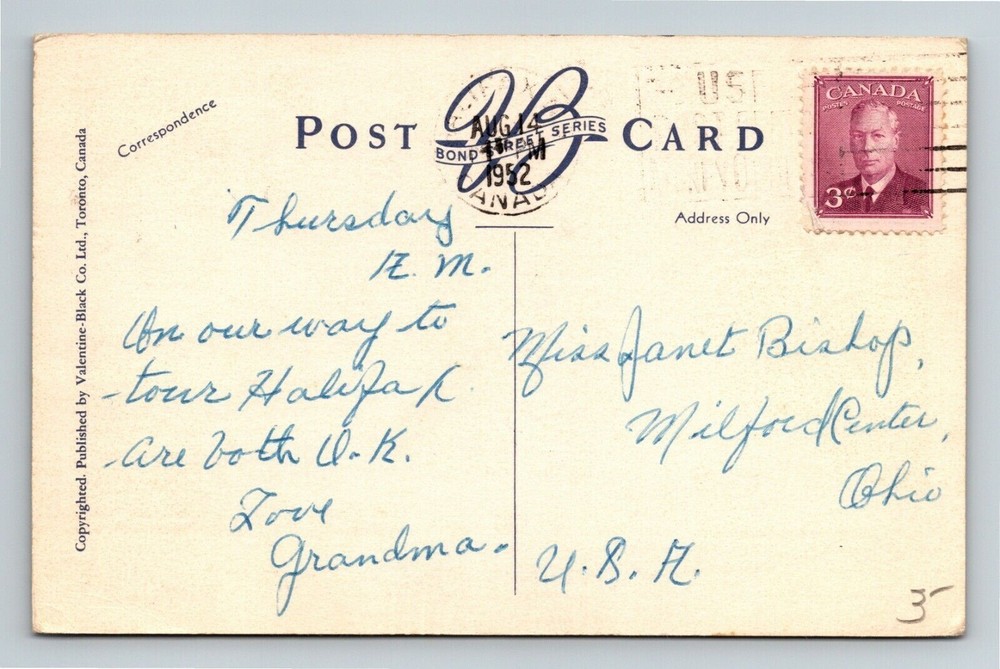 Copyrighted. Published by Valentine-Black Co. Ltd., Toronto, Canada
Correspondence
POST CARD
BOND STREET SERIES
AUG 14
PM
1952
CANADA
US
CANADA
POSTES POSTAGE
3¢
Address Only
Thursday
A. M.
On our way to
tour Halifax.
Are both O.K.
Love
Grandma.
Miss Janet Bishop,
Milford Center,
Ohio
U. S. A.
3-